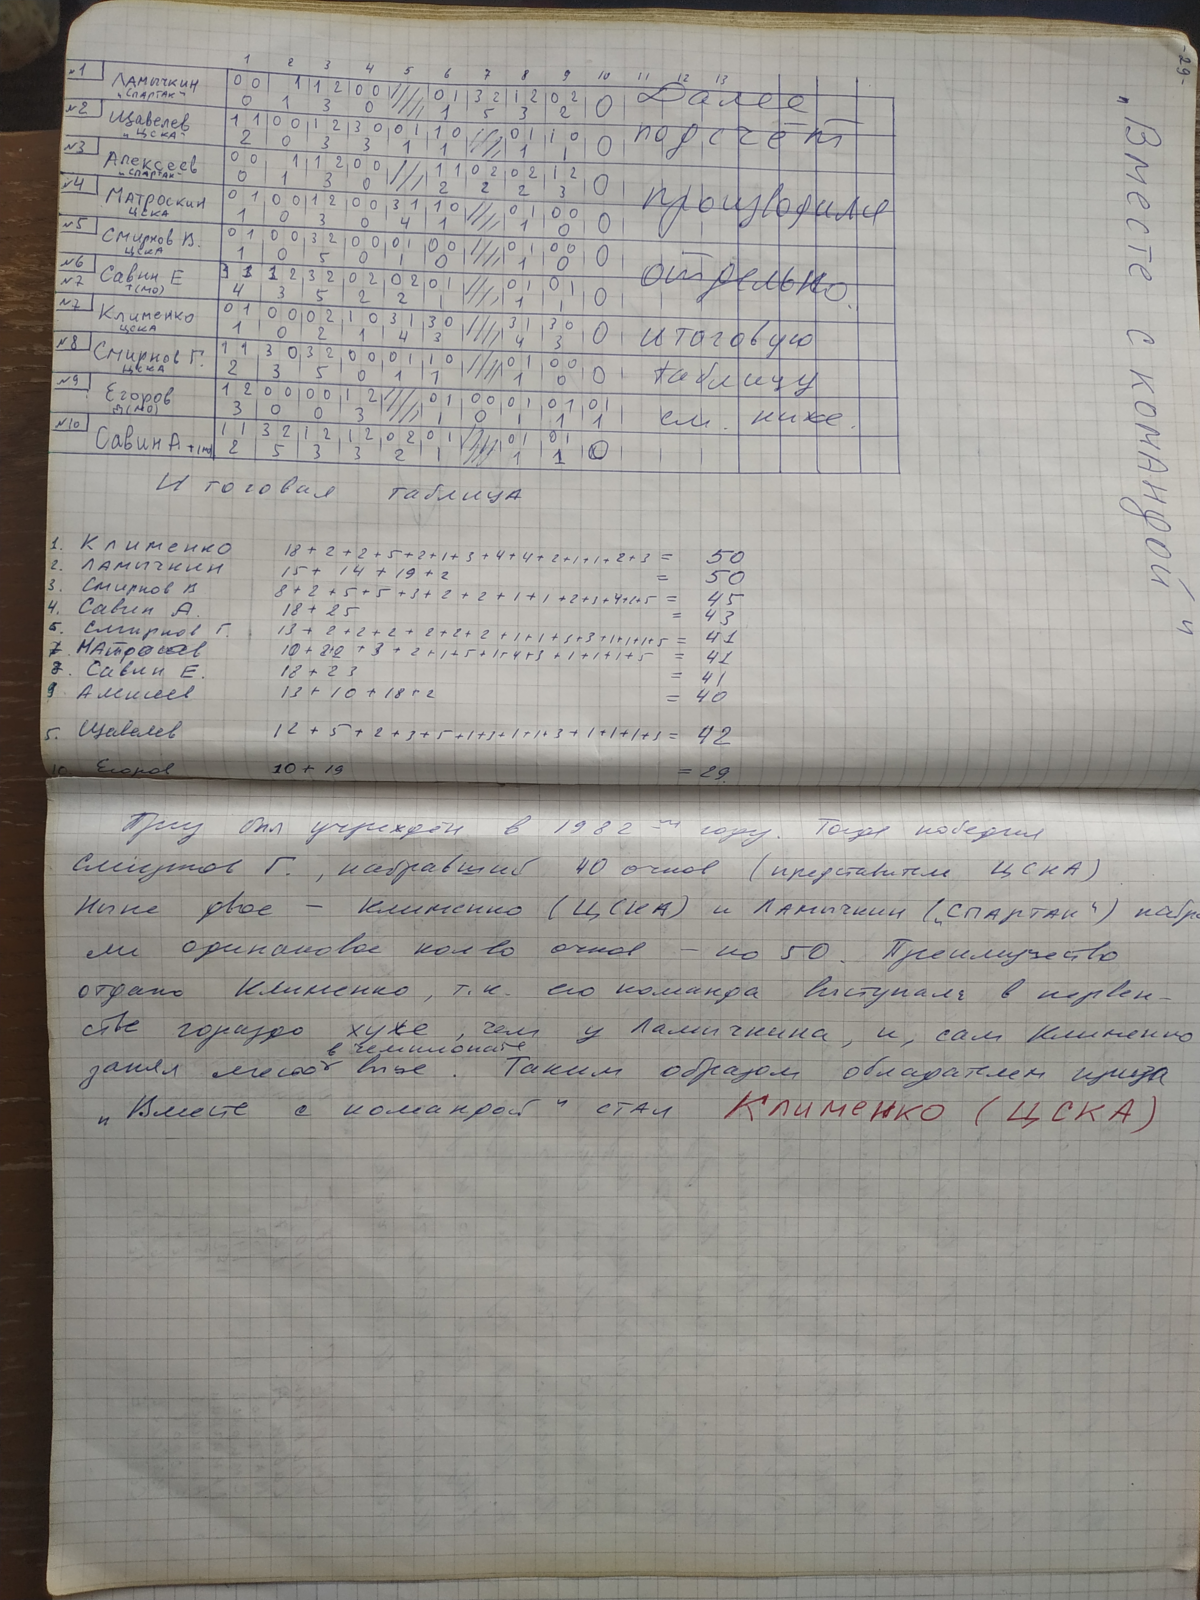 -29-
„Вместе с командой“
1 2 3 4 5 6 7 8 9 10 11 12 13
№1 Ламычкин „Спартак“ 00 11 20 0 //// 01 32 12 02 0
0 1 3 0 1 5 3 2
№2 Щавелев „ЦСКА“ 11 00 12 30 01 10 //// 01 10 0
2 0 3 3 1 1 1 1
№3 Алексеев „Спартак“ 00 11 20 0 //// 11 02 02 12 0
0 1 3 0 2 2 2 3
№4 Матроскин ЦСКА 01 00 12 00 31 10 //// 01 00 0
1 0 3 0 4 1 1 0
№5 Смирнов В. ЦСКА 01 00 32 00 01 00 //// 01 00 0
1 0 5 0 1 0 1 0
№6 Савин Е Т(МО) 31 12 32 02 02 01 //// 01 01 0
№7 4 3 5 2 2 1 1 1
№7 Клименко ЦСКА 01 00 02 10 31 30 //// 31 30 0
1 0 2 1 4 3 4 3
№8 Смирнов Г. ЦСКА 11 30 32 00 01 10 //// 01 00 0
2 3 5 0 1 1 1 0
№9 Егоров Т(МО) 12 00 00 12 //// 01 00 01 01 01
3 0 0 3 1 0 1 1 1
№10 Савин А Т(МО) 11 32 12 12 02 01 //// 01 01 0
2 5 3 3 2 1 1 1
Далее
подсчёт
производился
отдельно.
итоговую
таблицу
см. ниже.
Итоговая таблица
1. Клименко 18+2+2+5+2+1+3+4+4+2+1+1+2+3 = 50
2. Ламычкин 15+14+19+2 = 50
3. Смирнов В 8+2+5+5+3+2+2+1+1+2+3+4+2+5 = 45
4. Савин А. 18+25 = 43
6. Смирнов Г. 13+2+2+2+2+2+2+1+1+3+3+1+1+1+5 = 41
7. 10+20+3+2+1+5+1+4+3+1+1+1+5 = 41
7. Савин Е. 18+23 = 41
9 Алексеев 13+10+18+2 = 40
5. Щавелев 12+5+2+3+5+1+3+1+1+3+1+1+1+3 = 42
10 Егоров 10+19 = 29
Приз был учреждён в 1982-м году. Тогда победил
Смирнов Г., набравший 40 очков (представитель ЦСКА)
Ныне двое – Клименко (ЦСКА) и Ламычкин („Спартак“) набра
ли одинаковое кол-во очков – по 50. Преимущество
отдано Клименко, т.к. его команда выступала в первен-
стве гораздо хуже, чем у Ламычкина, и, сам Клименко
занял место в чемпионате выше. Таким образом обладателем приза
„Вместе с командой“ стал Клименко (ЦСКА)